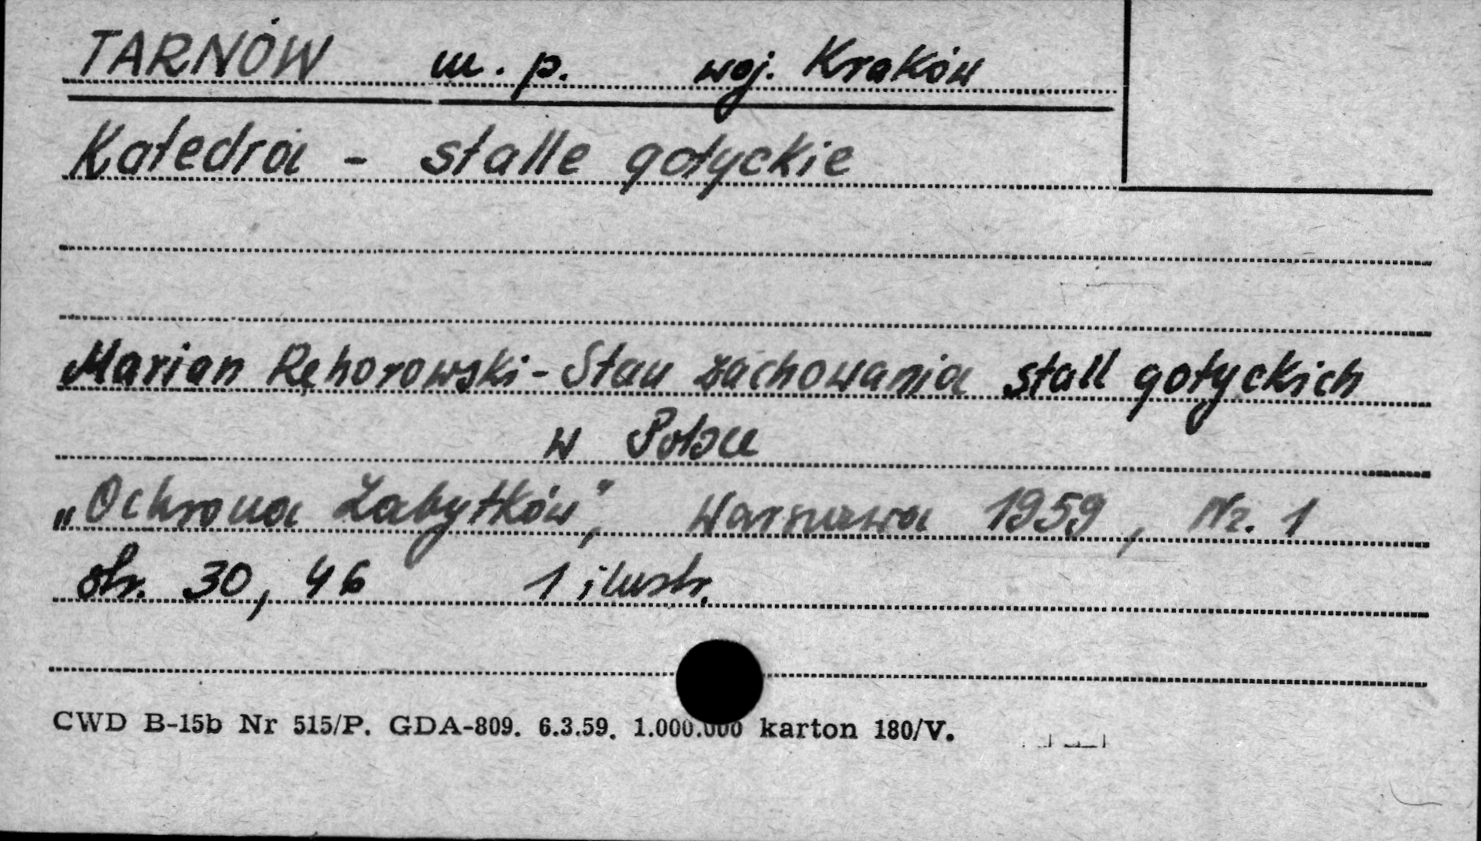 TARNÓW m. p. woj. Kraków
Katedra - stalle gotyckie
Marian Rehorowski - Stan zachowania stall gotyckich
w Polsce
„Ochrona Zabytków", Warszawa 1959, Nr. 1
str. 30, 46 1 ilustr.
CWD B-15b Nr 515/P. GDA-809. 6.3.59. 1.000.000 karton 180/V.